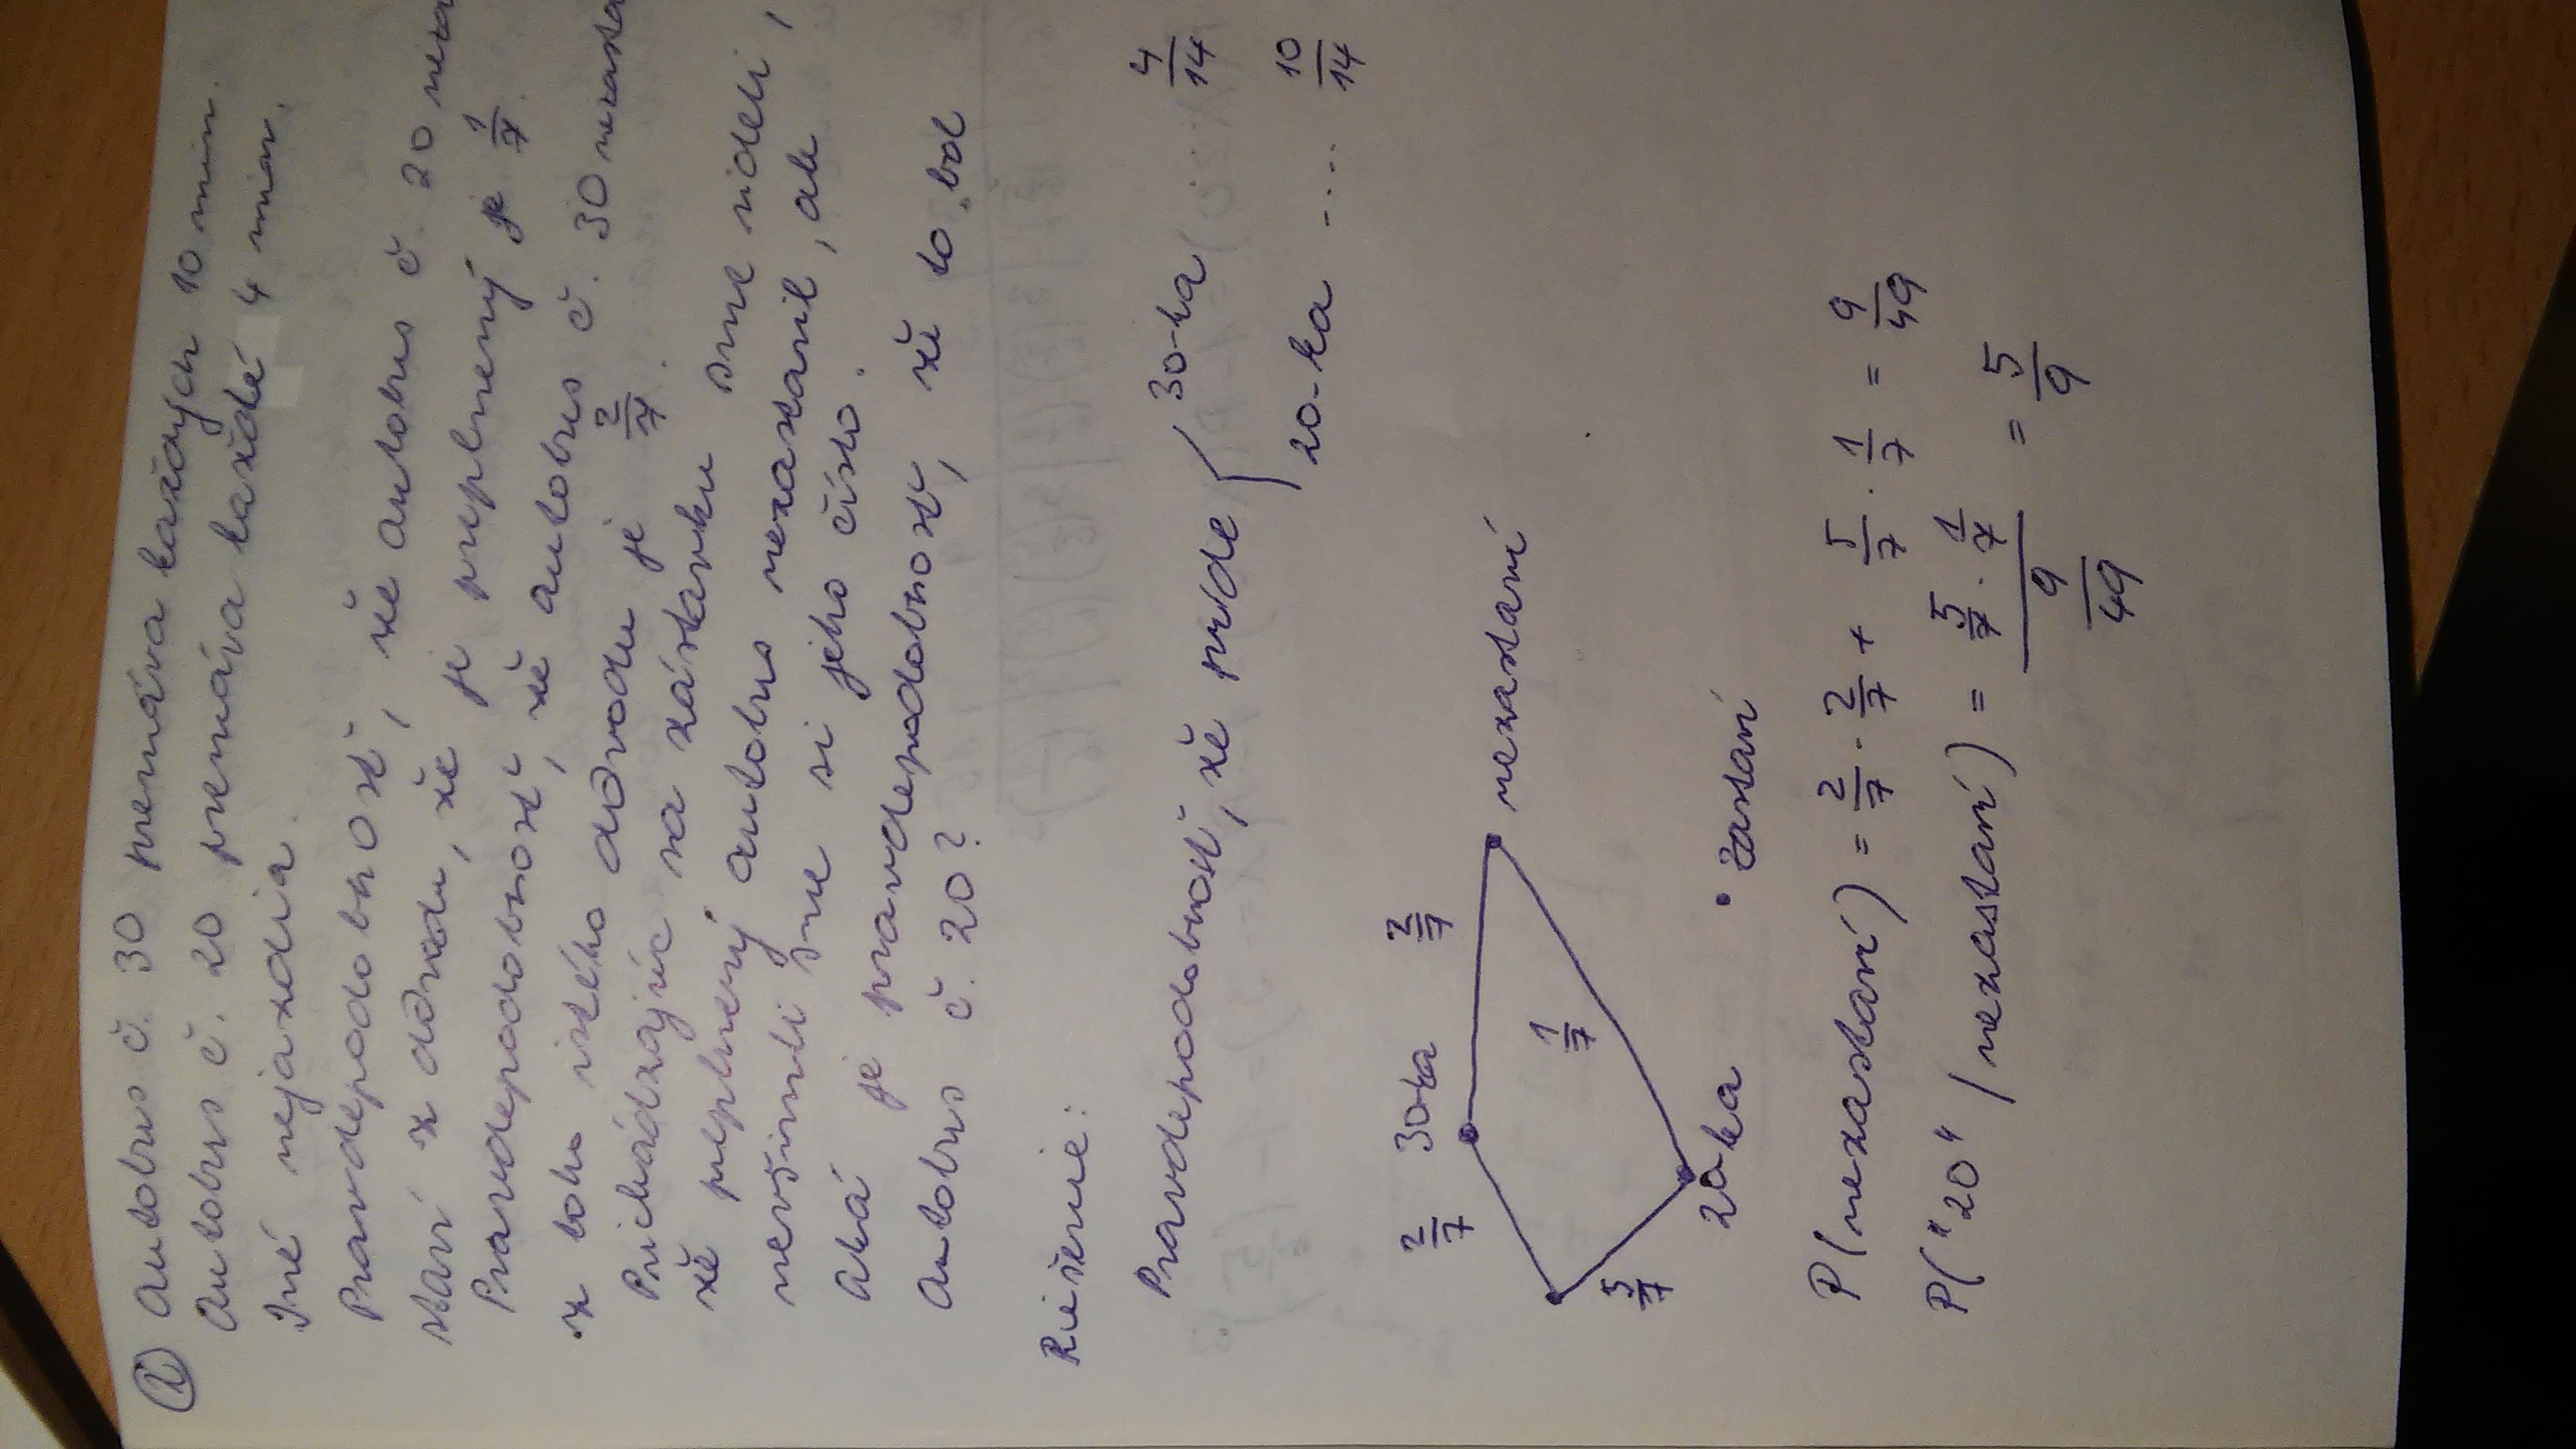 2 Autobus č. 30 premáva každých 10 min.
Autobus č. 20 premáva každé 4 min.
Iné nejazdia.
Pravdepodobnosť, že autobus č. 20 neza
staví z dôvodu, že je preplnený je 1/7.
Pravdepodobnosť, že autobus č. 30 nezasta
z toho istého dôvodu je 2/7.
Prichádzajúc na zástavku sme videli,
že preplnený autobus nezastavil, ale
nevšimli sme si jeho číslo.
Aká je pravdepodobnosť, že to bol
Autobus č. 20?
Riešenie:
Pravdepodobnosť, že príde 30-ka .... 4/14
20-ka .... 10/14
2/7 30-ka 2/7
nezastaví
1/7
5/7
20-ka
zastaví
P(nezastaví) = 2/7 · 2/7 + 5/7 · 1/7 = 9/49
P("20" / nezastaví) = (5/7 · 1/7) / (9/49) = 5/9